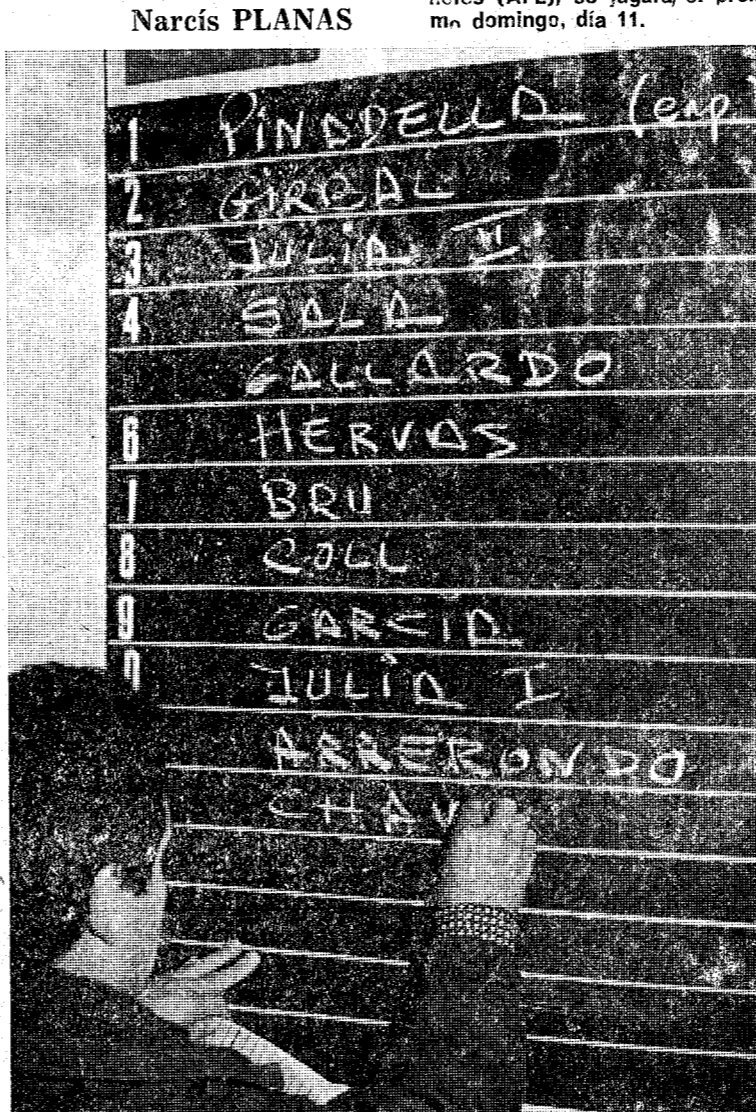 Narcís PLANAS
mo domingo, día 11.
1 PINADELLA (emp
2 GIRBAL
3 JULIÀ II
4 SALA
GALLARDO
6 HERVAS
7 BRU
8 COLL
9 GARCIA
JULIÀ I
ARRERONDO
CHAV